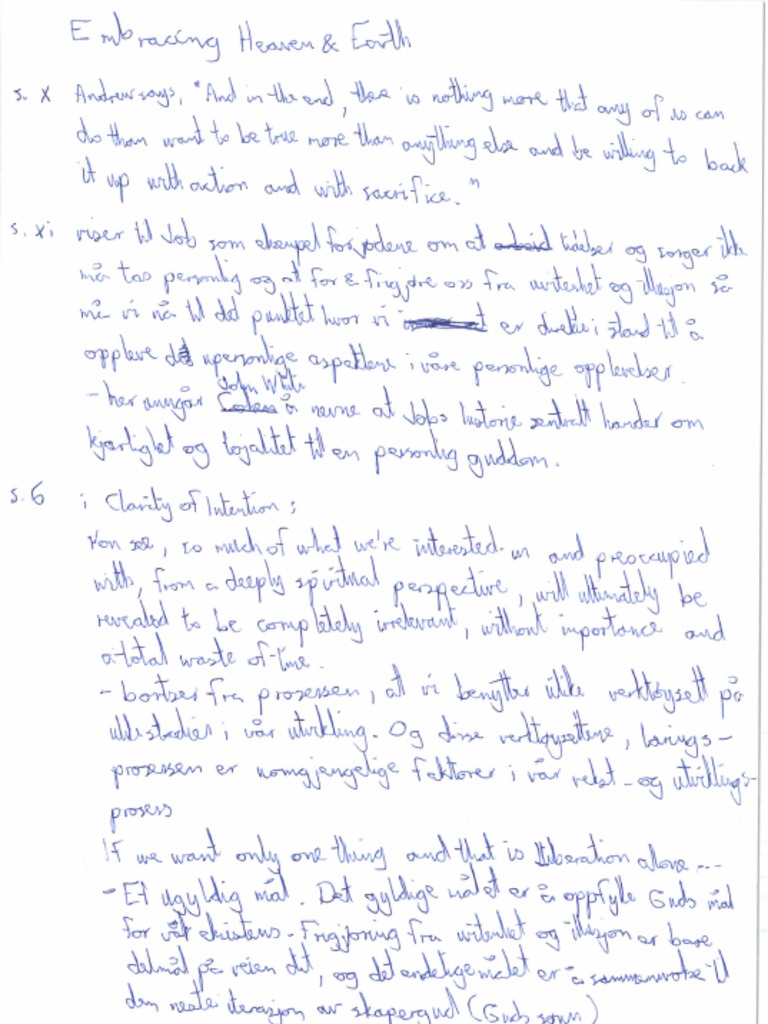 Embracing Heaven & Earth
s. x Andrew says, "And in the end, there is nothing more that any of us can
do than want to be true more than anything else and be willing to back
it up with action and with sacrifice."
s. xi viser til Job som eksempel for jødene om at lidelser og sorger ikke
må tas personlig og at for å frigjøre oss fra uvitenhet og illusjon så
må vi nå til det punktet hvor vi er direkte i stand til å
oppleve de upersonlige aspektene i våre personlige opplevelser.
- her unngår John White å nevne at Jobs historie sentralt handler om
kjærlighet og lojalitet til en personlig guddom.
s. 6 i Clarity of Intention:
You see, so much of what we're interested in and preoccupied
with, from a deeply spiritual perspective, will ultimately be
revealed to be completely irrelevant, without importance and
a total waste of time.
- bortser fra prosessen, at vi benytter ulike verktøysett på
ulike stadier i vår utvikling. Og disse verktøysettene, lærings-
prosessen er uomgjengelige faktorer i vår vekst- og utviklings-
prosess
If we want only one thing and that is liberation alone ---
- Et ugyldig mål. Det gyldige målet er å oppfylle Guds mål
for vår eksistens. Frigjøring fra uvitenhet og illusjon er bare
delmål på veien dit, og det endelige målet er å sammenvokse til
den neste iterasjon av skapergud (Guds sønn)